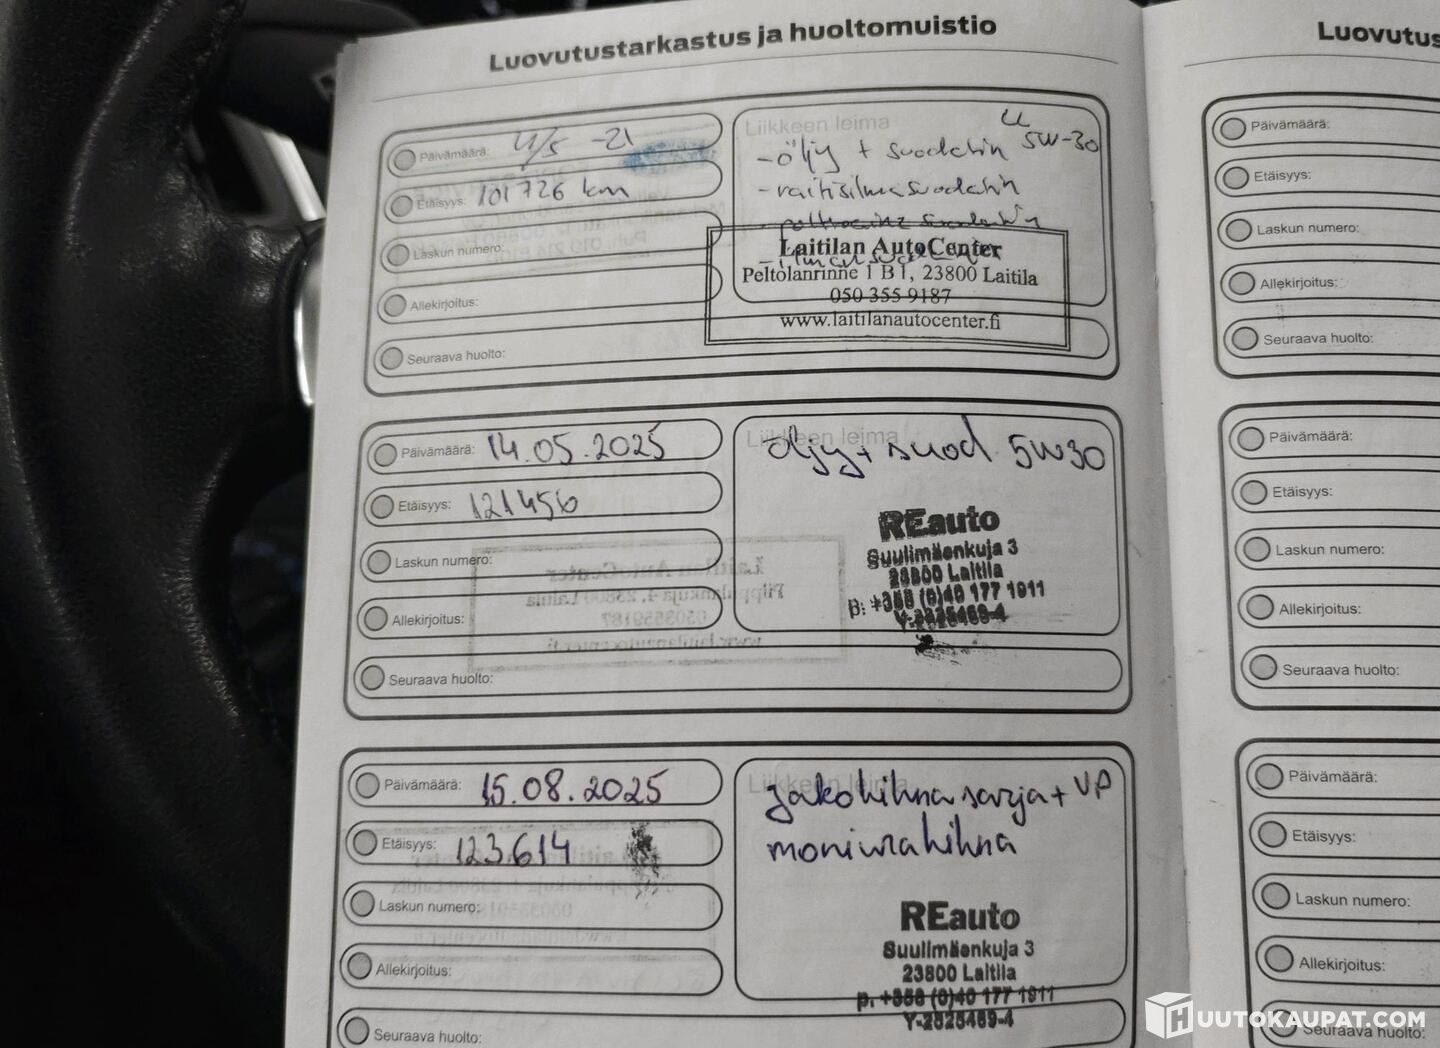 Luovutustarkastus ja huoltomuistio
Päivämäärä: 4/5 -21
Etäisyys: 101726 km
Laskun numero:
Allekirjoitus:
Seuraava huolto:
Liikkeen leima
- öljy + suodatin 5W-30
- raitisilmasuodatin
Laitilan AutoCenter
Peltolanrinne 1 B 1, 23800 Laitila
050 355 9187
www.laitilanautocenter.fi
Päivämäärä: 14.05.2025
Etäisyys: 121456
Laskun numero:
Allekirjoitus:
Seuraava huolto:
Liikkeen leima
öljy + suod 5W30
REauto
Suulimäenkuja 3
23800 Laitila
p. +358 (0)40 177 1911
Päivämäärä: 15.08.2025
Etäisyys: 123.614
Laskun numero:
Allekirjoitus:
Seuraava huolto:
Liikkeen leima
jakohihna sarja + VP
moniurahihna
REauto
Suulimäenkuja 3
23800 Laitila
p. +358 (0)40 177 1911
Luovutus
Päivämäärä:
Etäisyys:
Laskun numero:
Allekirjoitus:
Seuraava huolto:
Päivämäärä:
Etäisyys:
Laskun numero:
Allekirjoitus:
Seuraava huolto:
Päivämäärä:
Etäisyys:
Laskun numero:
Allekirjoitus:
Seuraava huolto:
HUUTOKAUPAT.COM